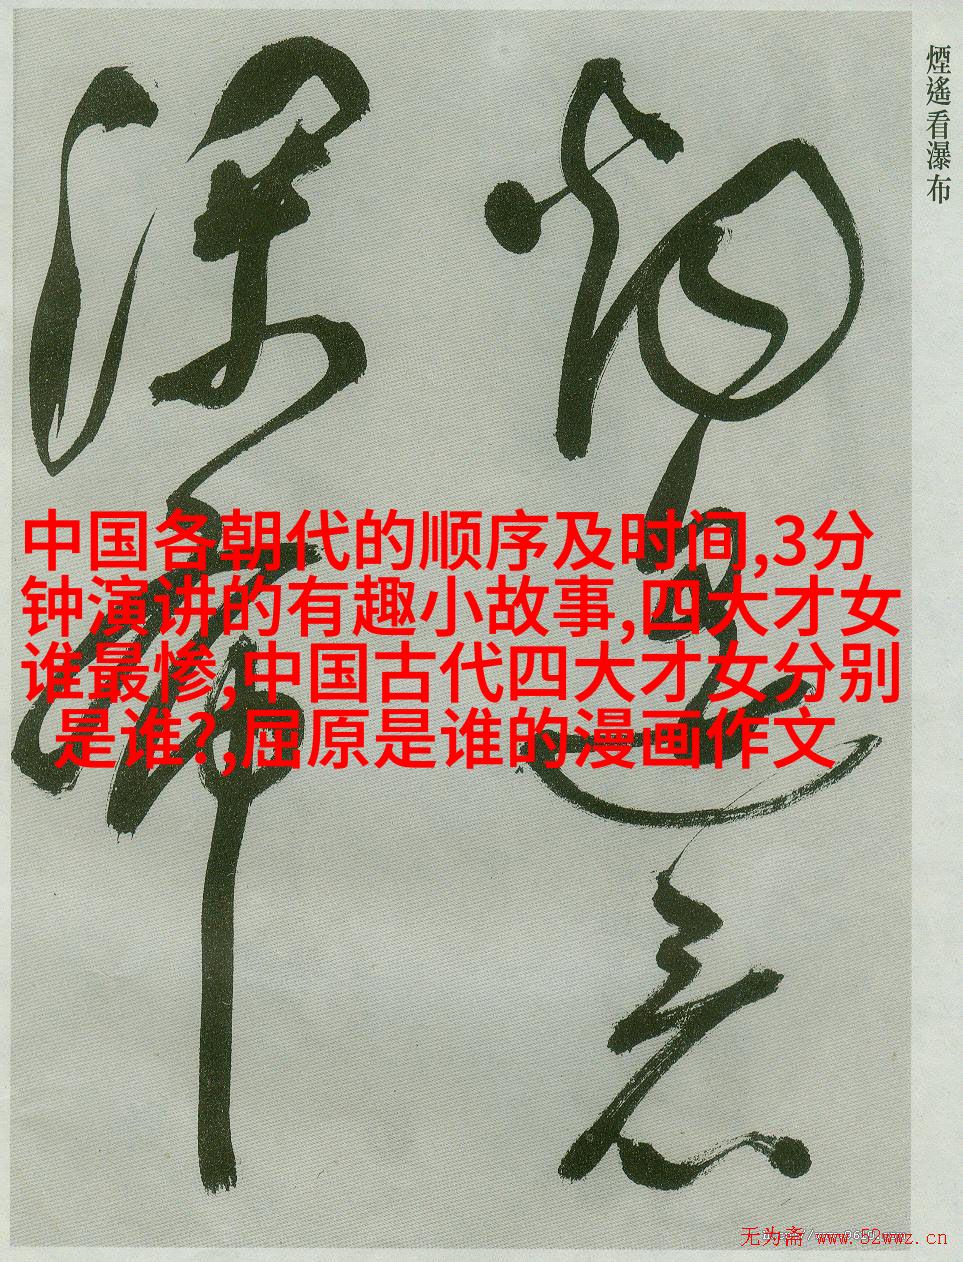 煙遙看瀑布
中国各朝代的顺序及时间,3分
钟演讲的有趣小故事,四大才女
谁最惨,中国古代四大才女分别
是谁?,屈原是谁的漫画作文
无为斋 www.52wwz.cn